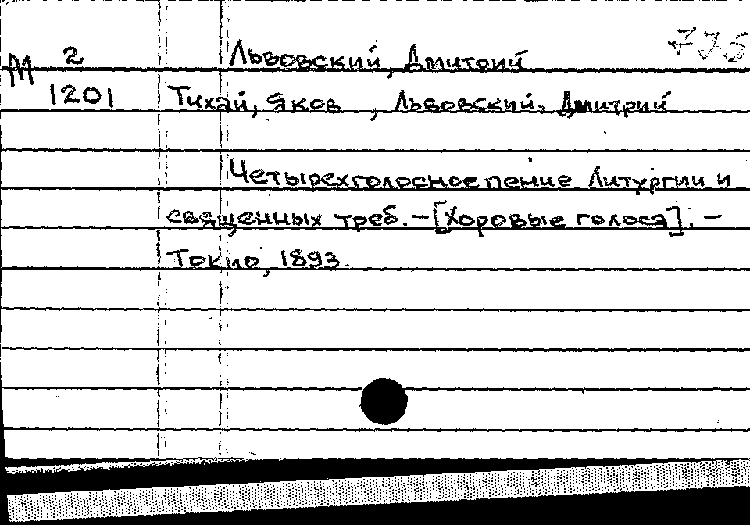 735
М 2 Львовский, Дмитрий
1201 Тихай, Яков , Львовский, Дмитрий
Четырехголосное пение Литургии и
священных треб. – [Хоровые голоса]. –
Токио, 1893.